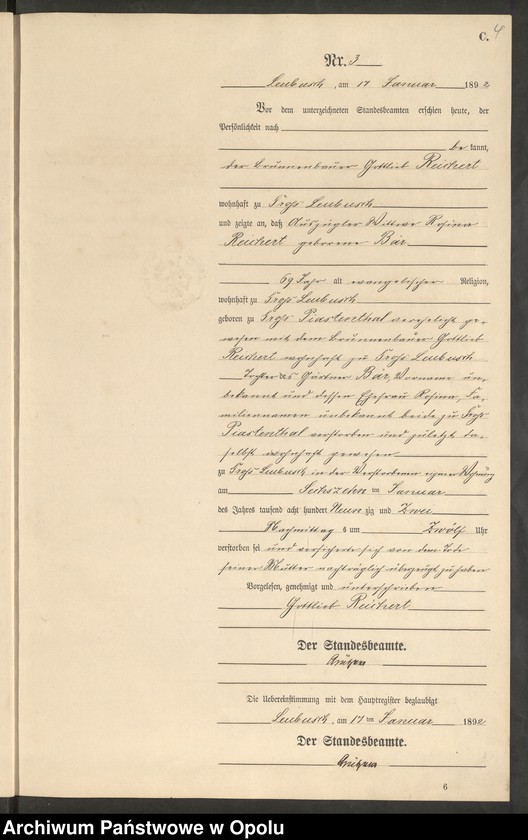 C. 4
Nr. 3
Leubusch, am 17 Januar 1892
Vor dem unterzeichneten Standesbeamten erschien heute, der
Persönlichkeit nach
be kannt,
der Brunnenbauer Gottlieb Reichert
wohnhaft zu Frgs Leubusch
und zeigte an, daß Auszügler Wittwe Rosina
Reichert geborene Bär
69 Jahr alt evangelischer Religion,
wohnhaft zu Frgs Leubusch
geboren zu Frgs Piastenthal verehelicht ge-
wesen mit dem Brunnenbauer Gottlieb
Reichert wohnhaft zu Frgs Leubusch
Tochter des Gärtner Bär, Vorname un-
bekannt und dessen Ehefrau Rosina, Fa-
miliennamen unbekannt beide zu Frgs
Piastenthal verstorben und zuletzt da-
selbst wohnhaft gewesen
zu Frgs Leubusch in der Verstorbenen eigener Wohnung
am Sechszehnten Januar
des Jahres tausend acht hundert Neunzig und Zwei
Nachmittag s um Zwölf Uhr
verstorben sei und versicherte sich von dem Tode
seiner Mutter nachträglich überzeugt zu haben
Vorgelesen, genehmigt und unterschrieben
Gottlieb Reichert
Der Standesbeamte.
Die Uebereinstimmung mit dem Hauptregister beglaubigt
Leubusch, am 17 ten Januar 1892
Der Standesbeamte.
6
Archiwum Państwowe w Opolu